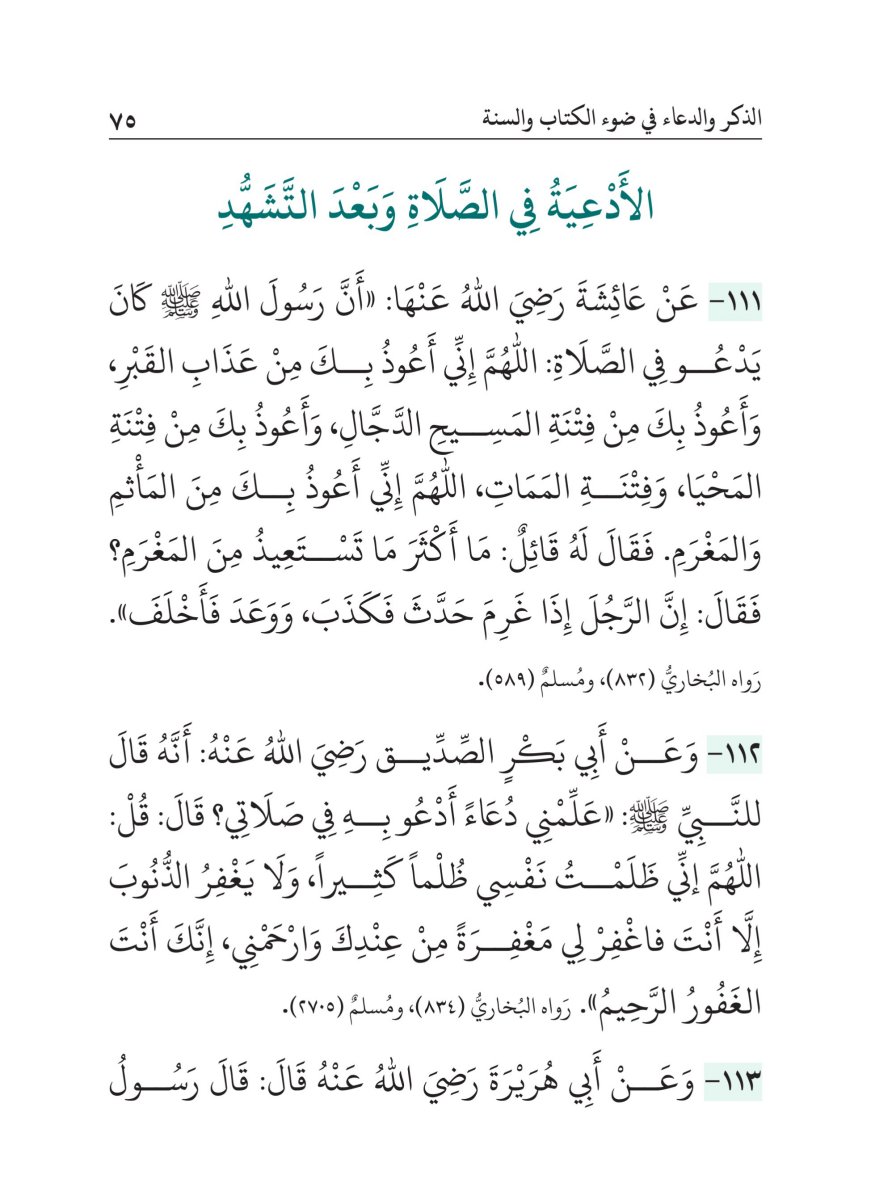 الذكر والدعاء في ضوء الكتاب والسنة ٧٥
الأَدْعِيَةُ فِي الصَّلَاةِ وَبَعْدَ التَّشَهُّدِ
١١١- عَنْ عَائِشَةَ رَضِيَ اللهُ عَنْهَا: «أَنَّ رَسُولَ اللهِ ﷺ كَانَ
يَدْعُو فِي الصَّلَاةِ: اللَّهُمَّ إِنِّي أَعُوذُ بِكَ مِنْ عَذَابِ القَبْرِ،
وَأَعُوذُ بِكَ مِنْ فِتْنَةِ المَسِيحِ الدَّجَّالِ، وَأَعُوذُ بِكَ مِنْ فِتْنَةِ
المَحْيَا، وَفِتْنَةِ المَمَاتِ، اللَّهُمَّ إِنِّي أَعُوذُ بِكَ مِنَ المَأْثمِ
وَالمَغْرَمِ. فَقَالَ لَهُ قَائِلٌ: مَا أَكْثَرَ مَا تَسْتَعِيذُ مِنَ المَغْرَمِ؟
فَقَالَ: إِنَّ الرَّجُلَ إِذَا غَرِمَ حَدَّثَ فَكَذَبَ، وَوَعَدَ فَأَخْلَفَ».
رَواه البُخاريُّ (٨٣٢)، ومُسلمٌ (٥٨٩).
١١٢- وَعَنْ أَبِي بَكْرٍ الصِّدِّيقِ رَضِيَ اللهُ عَنْهُ: أَنَّهُ قَالَ
للنَّبِيِّ ﷺ: «عَلِّمْنِي دُعَاءً أَدْعُو بِهِ فِي صَلَاتِي؟ قَالَ: قُلْ:
اللَّهُمَّ إنِّي ظَلَمْتُ نَفْسِي ظُلْماً كَثِيراً، وَلَا يَغْفِرُ الذُّنُوبَ
إِلَّا أَنْتَ فاغْفِرْ لِي مَغْفِرَةً مِنْ عِنْدِكَ وَارْحَمْنِي، إِنَّكَ أَنْتَ
الغَفُورُ الرَّحِيمُ». رَواه البُخاريُّ (٨٣٤)، ومُسلمٌ (٢٧٠٥).
١١٣- وَعَنْ أَبِي هُرَيْرَةَ رَضِيَ اللهُ عَنْهُ قَالَ: قَالَ رَسُولُ